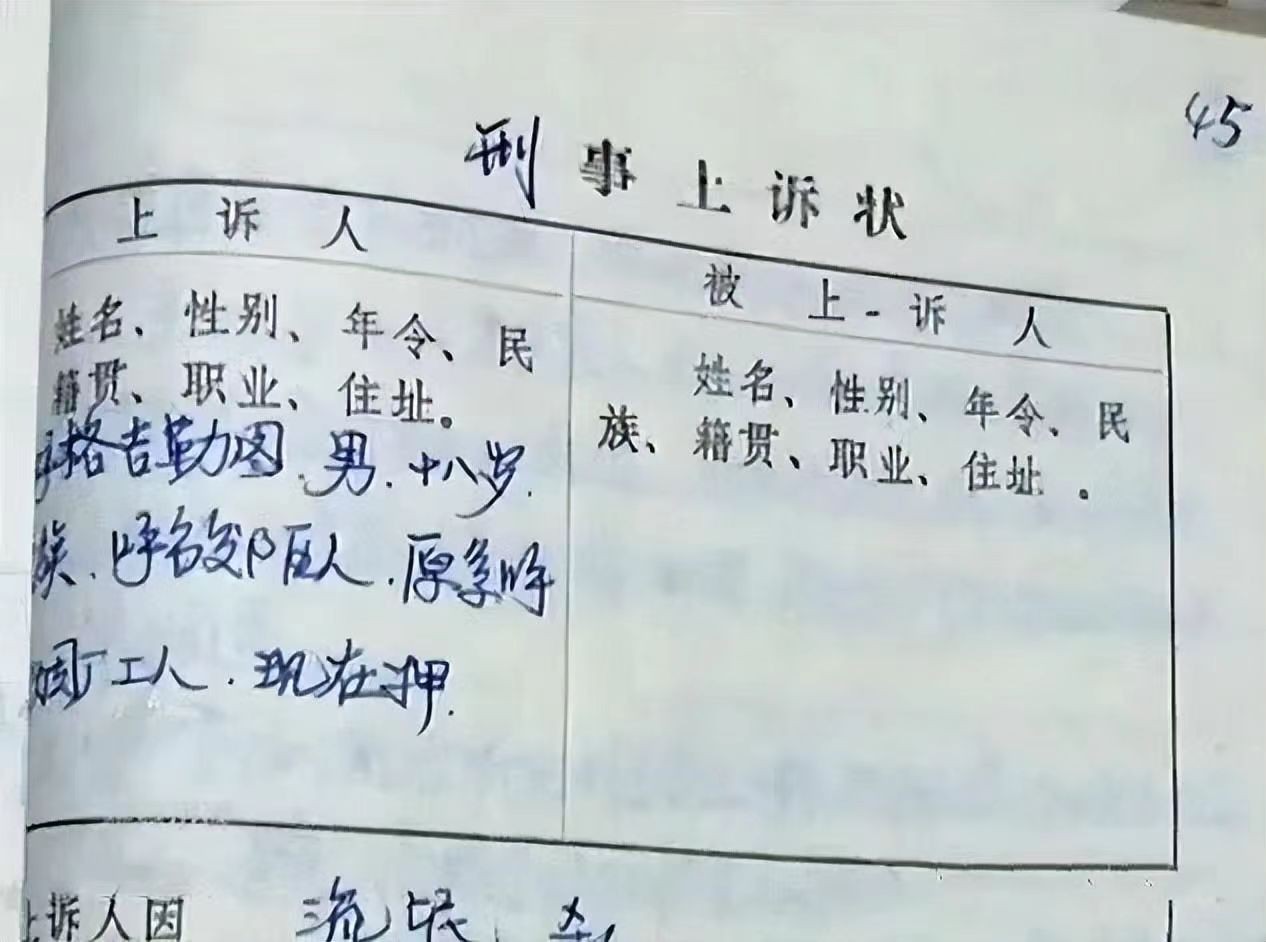 45
刑事上诉状
上诉人
被上诉人
姓名、性别、年令、民
籍贯、职业、住址。
格吉勒图.男.十八岁.
族.呼市郊区人.原系呼
厂工人.现在押.
姓名、性别、年令、民
族、籍贯、职业、住址。
上诉人因 流氓